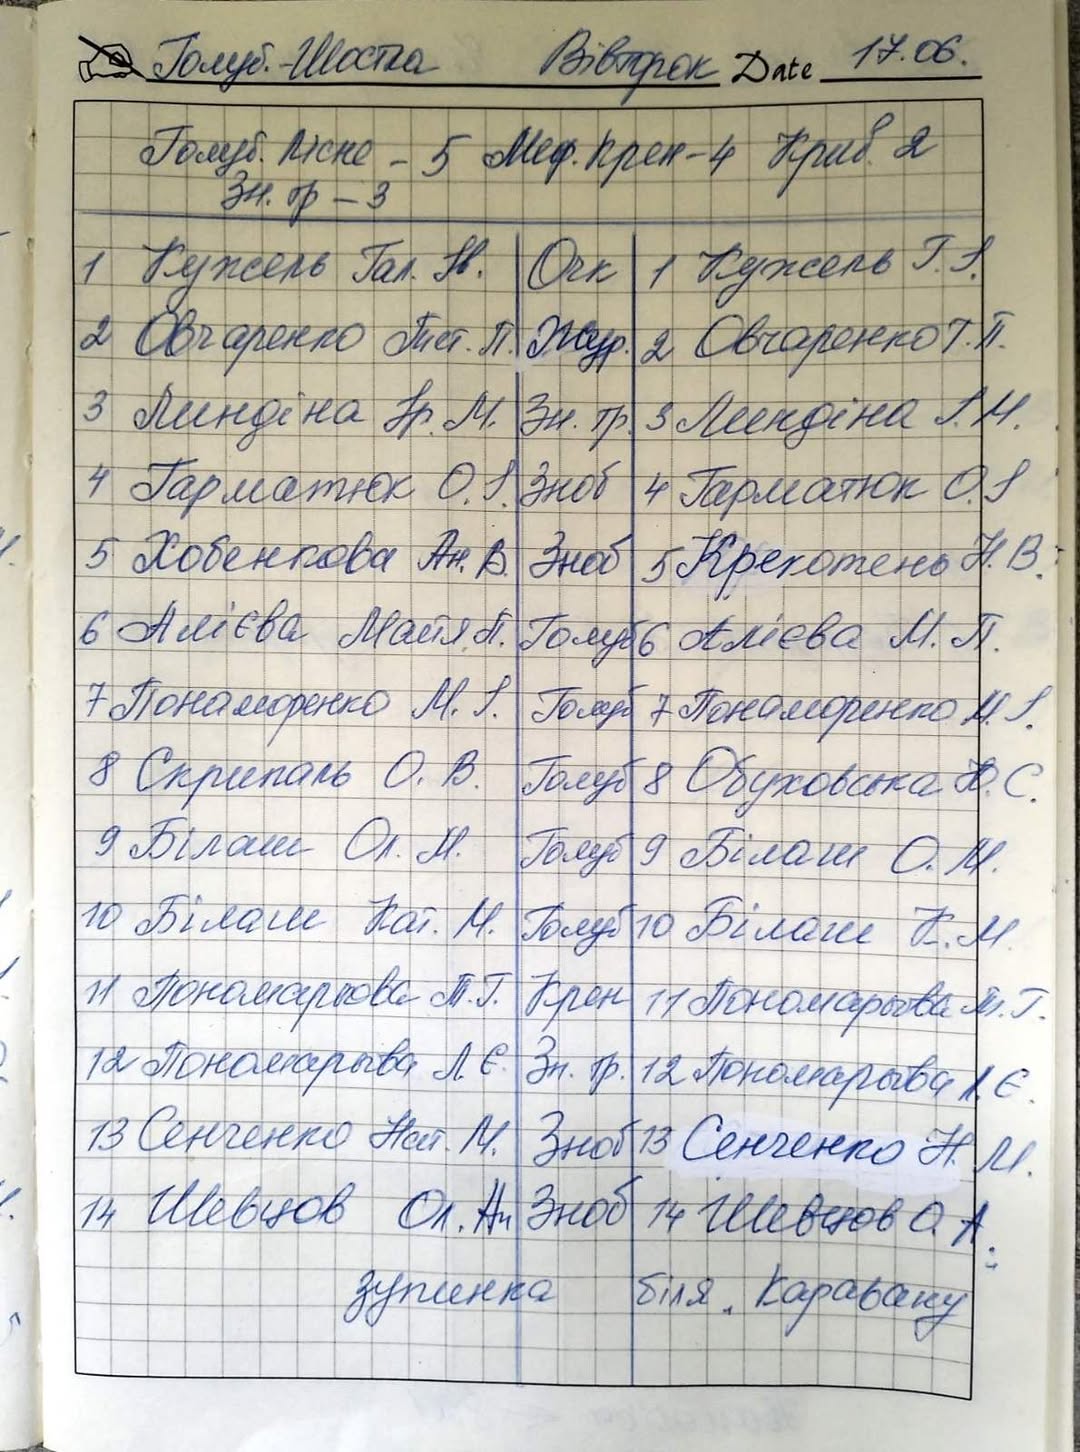 Голуб.-Шостка Вівторок Date 17.06.
Голуб. Лісне - 5 Меф. Крен-4 Крив. 2
Зн. гр - 3
1 Кужель Гал. Ів. Очк 1 Кужель Г. І.
2 Овчаренко Тет. П. Жур. 2 Овчаренко Т. П.
3 Линдіна Ір. М. Зн. гр. 3 Линдіна І. М.
4 Гарматюк О. І Зноб 4 Гарматюк О. І
5 Хобенкова Ан. В. Зноб 5 Крекотень Н. В.
6 Алієва Майя П. Голуб 6 Алієва М. П.
7 Понаморенко М. І. Голуб 7 Понаморенко М. І.
8 Скрипаль О. В. Голуб 8 Обуховська Ю. С.
9 Білаш Ол. М. Голуб 9 Білаш О. М.
10 Білаш Кат. М. Голуб 10 Білаш К. М.
11 Пономарьова Т. Г. Крен 11 Пономарьова Т. Г.
12 Пономарьва Л. Є. Зн. гр. 12 Пономарьва Л. Є.
13 Сенченко Нат. М. Зноб 13 Сенченко Н. М.
14 Шевцов Ол. Ан Зноб 14 Шевцов О. А.
зупинка біля Каравану